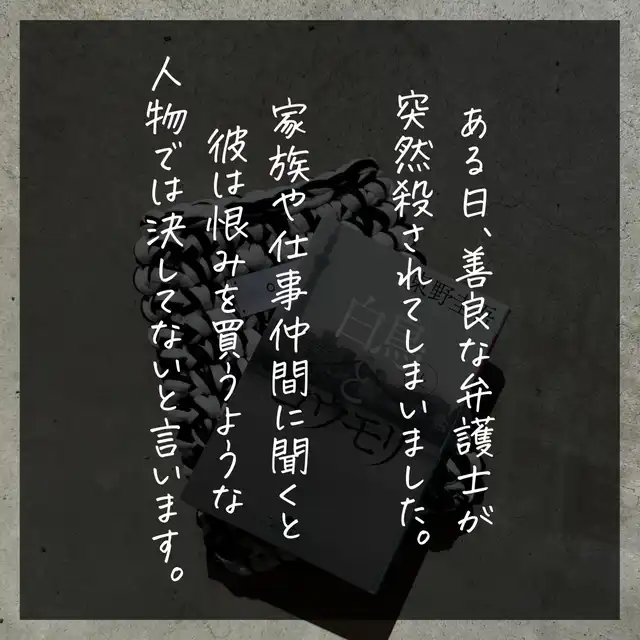 ある日、善良な弁護士が
突然殺されてしまいました。
家族や仕事仲間に聞くと
彼は恨みを買うような
人物では決してないと言います。
白鳥と
コウモリ